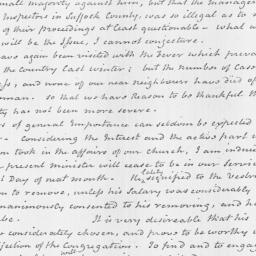 small majority against him, but that the manager
Inspectors in Suffolk County, was so illegal as to
of their proceedings at least questionable – what
will be the Issue, I cannot conjecture.
have again been visited with the Fever which preva
the Country last winter; but the number of Cas
ss, and none of our near Neighbours have died of
oman. So that we have Reason to be thankful
ty has not been more severe.
of general Importance can seldom be expected
– Considering the Interest and the active part
on took in the affairs of our church, I am induc
present minister will cease to be in our Servic
Day of next month. He lately signified to the Vestr
on to remove, unless his Salary was considerably
nanimously consented to his removing, and he
be. It is very desireable that his
considerately chosen, and prove to be worthy
fection of the Congregation. To find and to engag